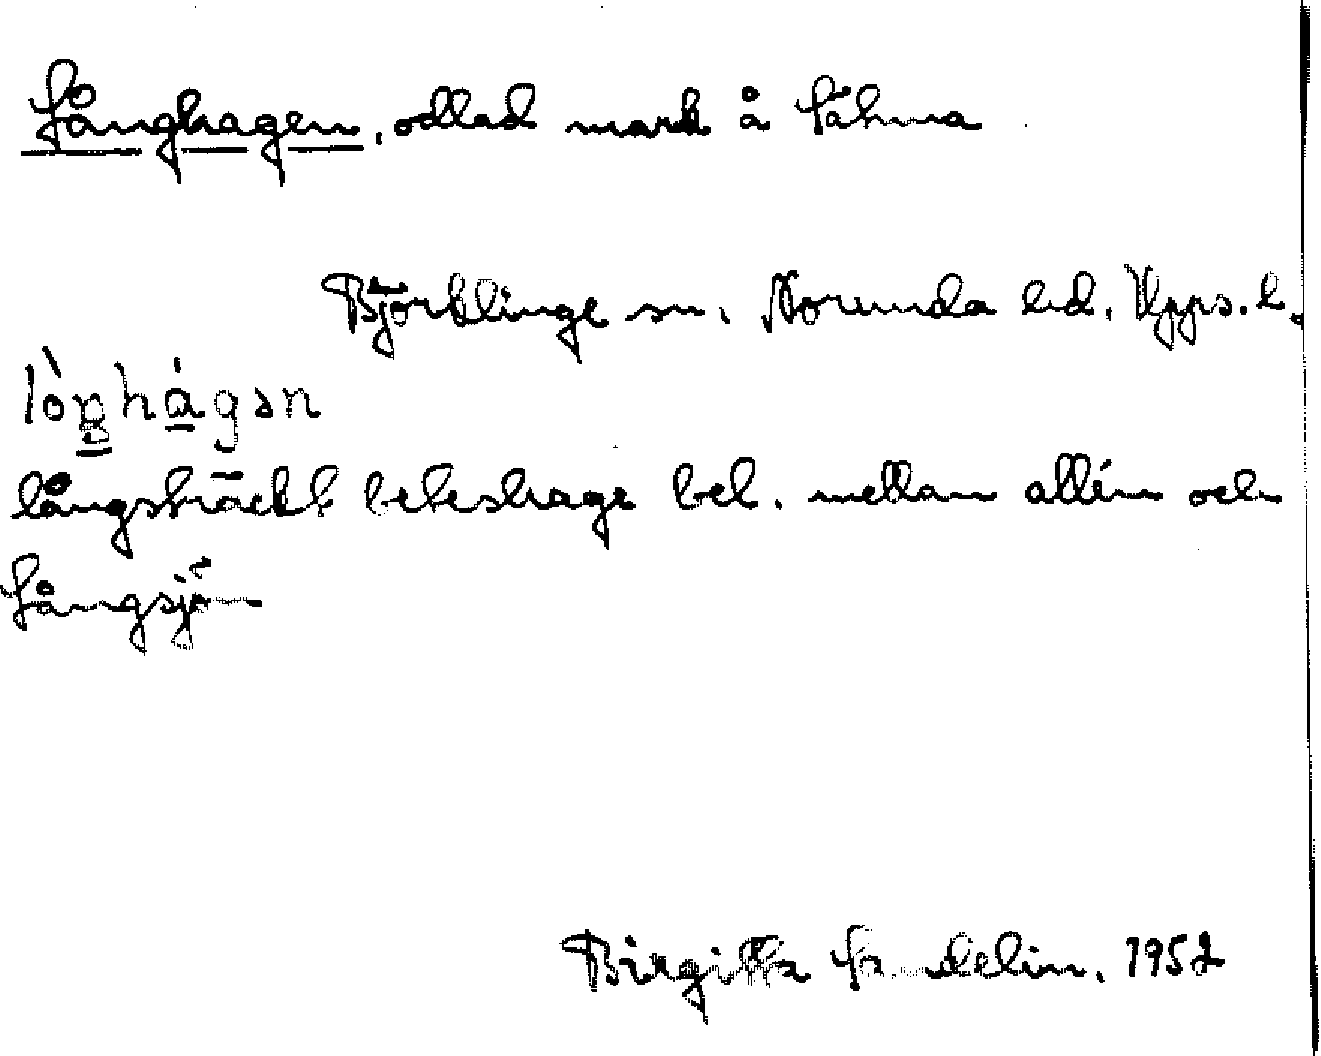 Långhagen, odlad mark å Sähma
Björklinge sn. Norunda hd. Upps. l.
lòŋhágən
långsträckt beteshage bel. mellan allén och
Långsjön
Birgitta Sandelin. 1952